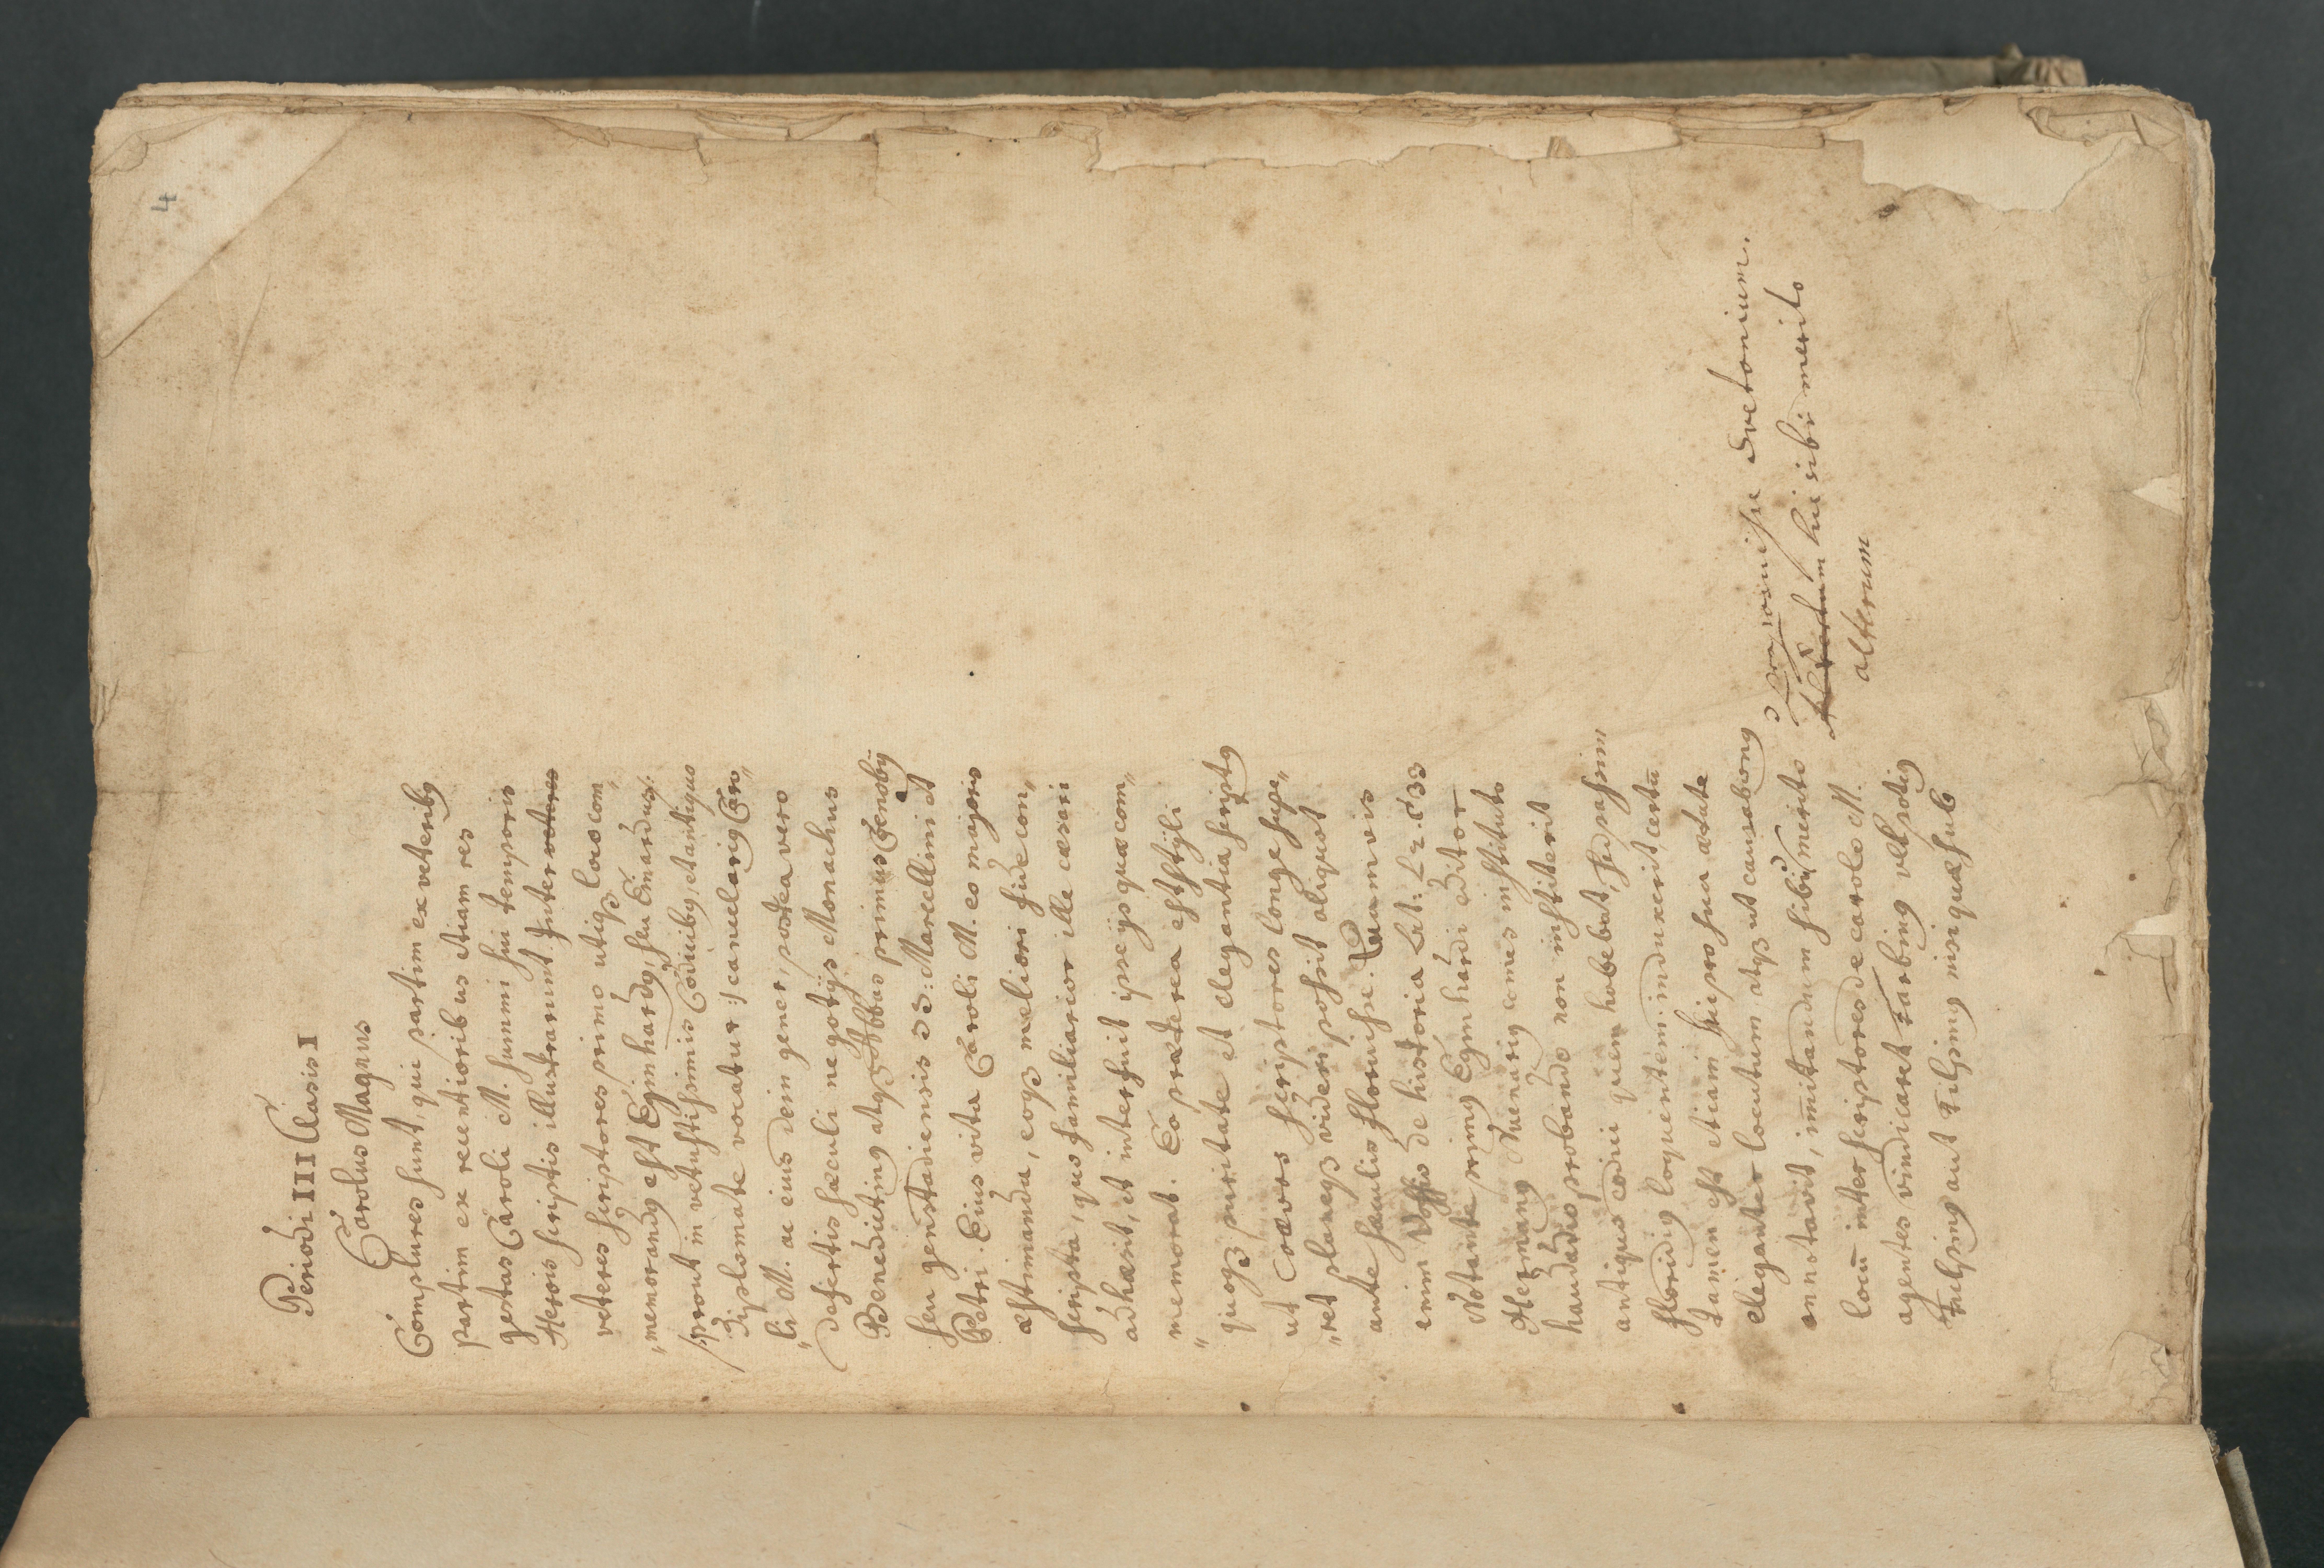 4
Periodi III Clasis I
Carolus Magnus
Complures sunt, qui partim ex veterib9
partim ex recentioribus etiam res
gestas Caroli M. summi sui temporis
Herois scriptis illustrarunt. Inter veteres
veteres scriptores primo utiq3 loco com„
„memorand9 est Eginhard9, seu Einardus/:
prout in vetustissimis Codicib9, et antiquo
diplomate vocatur :/ cancelarig Caro„
„li M. ac eius dein gener, postea vero
desertis sæculi negotijs Monachus
Benedictin9 atq3 Abbas primus Cœnobij
seu genstadiensis SS: Marcellini et
Petri. Eius vita Caroli M. eo majoris
æstimanda, eoq3 meliori fide con„
scripta, quo familiarior ille cæsari
adhæsit, et interfuit ipse ijs quæ com„
„memorat. Eo præterea est styli
quoq3 puritate et elegantia script9
ut Coævos scriptores longe supe„
„ret planeq3 videri possit aliquot
ante sæculis floruisse. Quamvis
enim Vossius de historia Lat: L 2. c 33
Notante primg Eginhardi editor
Herman9 Nuenari9 comes instituto
haudadio probando non institerit
antiquo codici quem habebat, sed passim
florid9 loquentem induxerit, certū
tamen est etiam sui pro sua ætate
eleganter locutum atq3 ut causabon9
annotavit, imitandum sibi merito
locū inter scriptores de carolo M.
agentes vindicaret
fuelsing aut Tilping nisi quæ sub
proposuisse Svetonium.
hic sibi merito
alterum